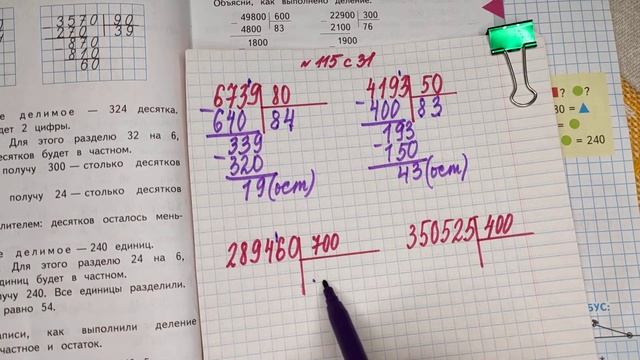 Объясни, как выполнено деление.
3570 90
270 39
870
810
60
49800 600
4800 83
1800
22900 300
2100 76
1900
№ 115 с 31
6739 80
640 84
339
320
19 (ост)
4193 50
400 83
193
150
43 (ост)
289460 700
350525 400
е делимое — 324 десятка,
дет 2 цифры.
Для этого разделю 32 на 6,
есятков будет в частном.
получу 300 — столько десятков
получу 24 — столько десятков
лителем: десятков осталось мень-
е делимое — 240 единиц.
Для этого разделю 24 на 6,
единиц будет в частном.
лучу 240. Все единицы разделили.
равно 54.
записи, как выполнили деление
частное и остаток.
? ?
80 =
= 240
БУС: